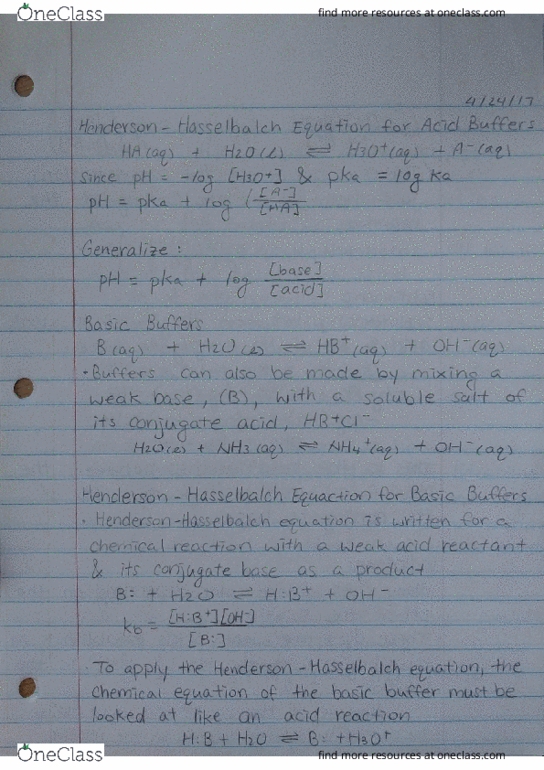 OneClass
find more resources at oneclass.com
4/24/17
Henderson-Hasselbalch Equation for Acid Buffers
HA(aq) + H2O(l) ⇌ H3O+(aq) + A-(aq)
since pH = -log [H3O+] & pka = log Ka
pH = pka + log ([A-]/[HA]
Generalize:
pH = pka + log [base]/[acid]
Basic Buffers
B(aq) + H2O(l) ⇌ HB+(aq) + OH-(aq)
· Buffers can also be made by mixing a
weak base, (B), with a soluble salt of
its conjugate acid, HB+Cl-
H2O(l) + NH3(aq) ⇌ NH4+(aq) + OH-(aq)
Henderson-Hasselbalch Equaction for Basic Buffers
· Henderson-Hasselbalch equation is written for a
chemical reaction with a weak acid reactant
& its conjugate base as a product
B: + H2O ⇌ H:B+ + OH-
kb = [H:B+][OH-]/[B:]
· To apply the Henderson-Hasselbalch equation, the
chemical equation of the basic buffer must be
looked at like an acid reaction
H:B + H2O ⇌ B: + H3O+
OneClass
find more resources at oneclass.com